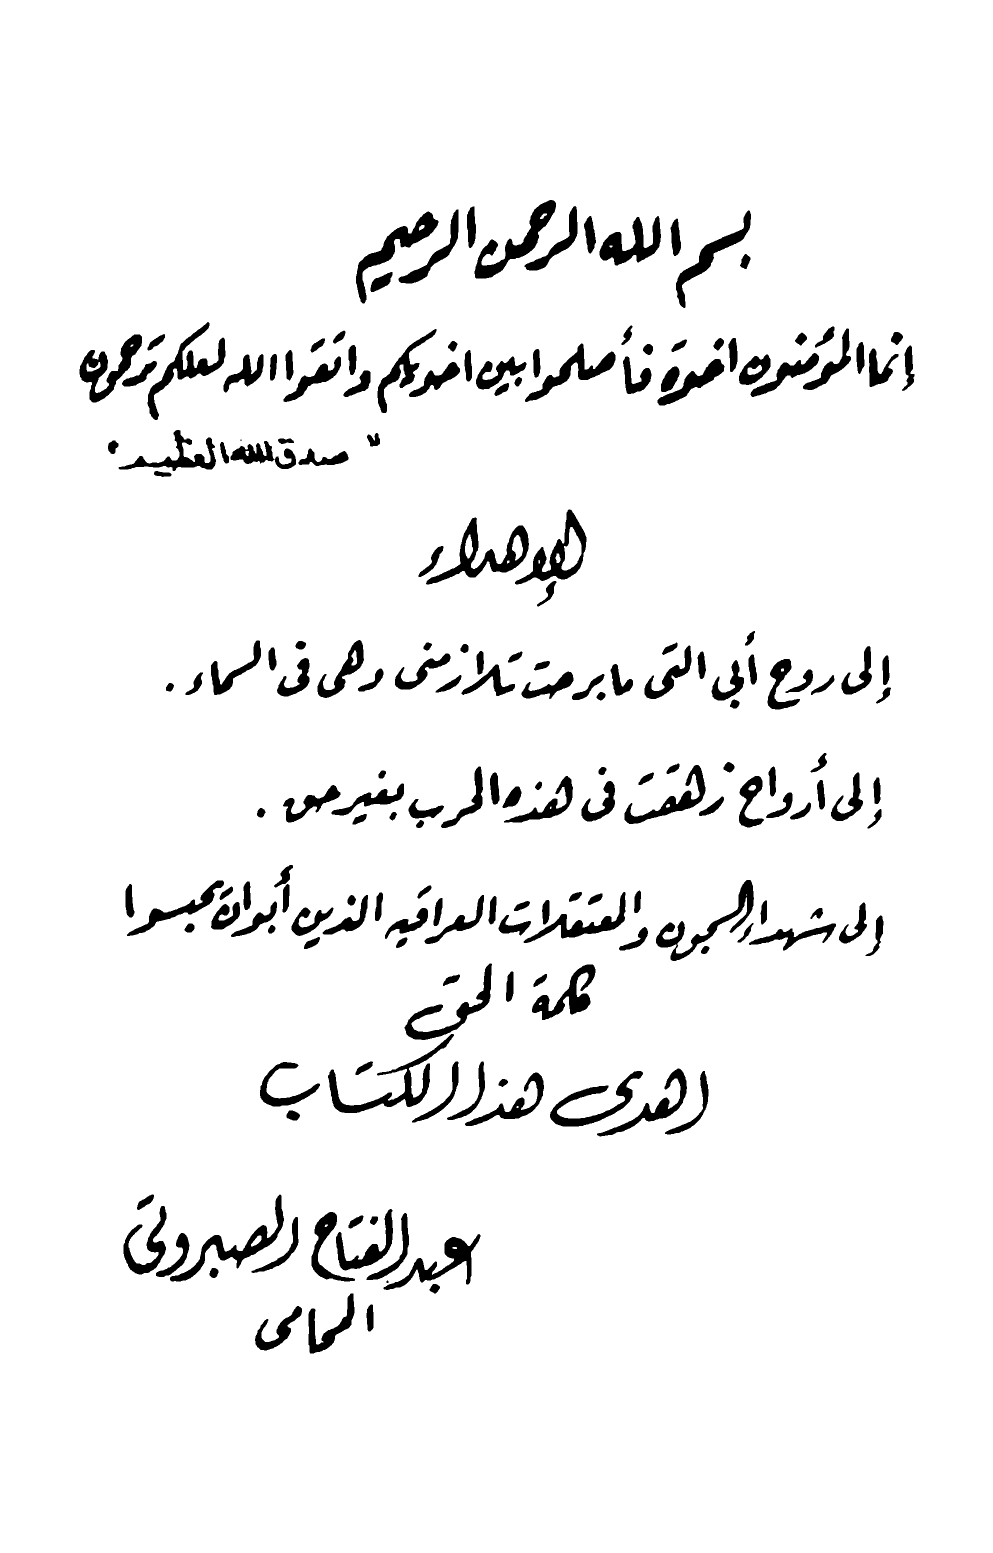 بسم الله الرحمن الرحيم
إنما المؤمنون اخوة فأصلحوا بين اخويكم واتقوا الله لعلكم ترحمون
" صدق الله العظيم "
الإهداء
إلى روح أبي التى ما برحت تلازمنى وهى فى السماء .
إلى أرواح زهقت فى هذه الحرب بغير حق .
إلى شهداء السجون والمعتقلات العراقيه الذين أبوا ان يحبسوا
كلمة الحق
اهدى هذا الكتاب
عبد الفتاح الصبروتى
المحامى